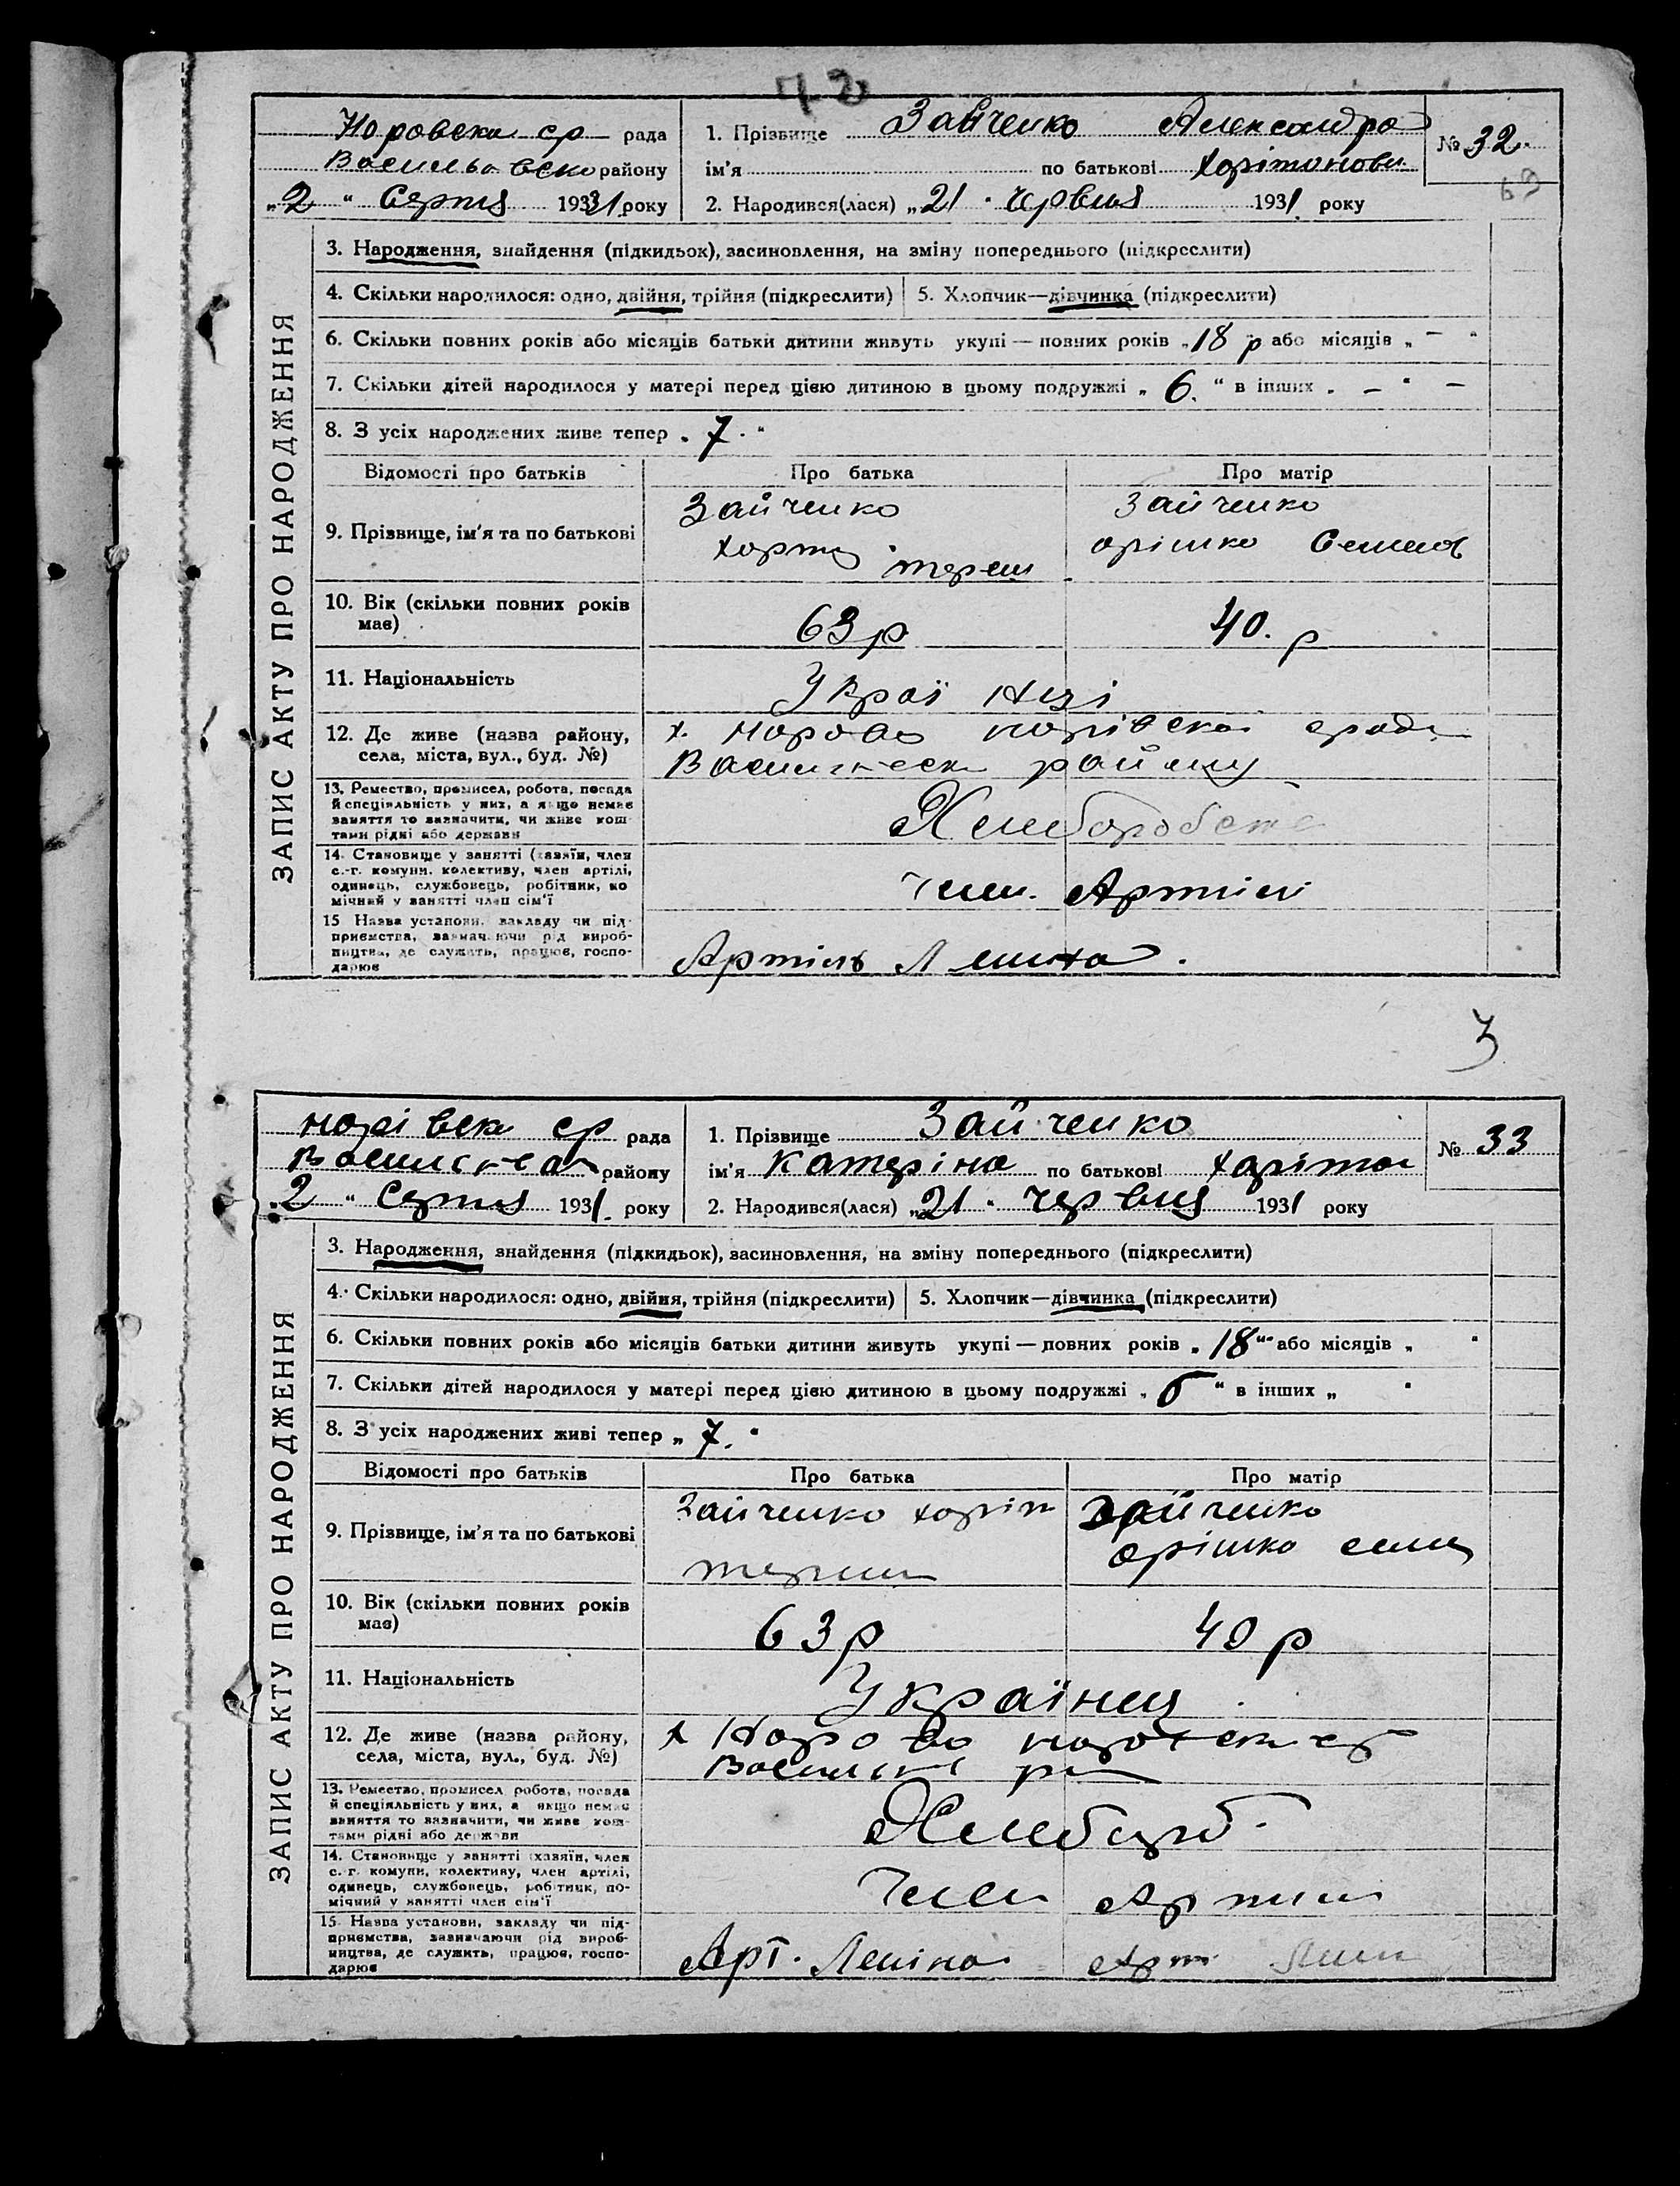 Норовска ср рада
Васильовско району
„2“ Серпня 1931 року
1. Прізвище Зайченко Александра
ім'я по батькові Харітонови
2. Народився(лася) „21“ червня 1931 року
№ 32.
69
ЗАПИС АКТУ ПРО НАРОДЖЕННЯ
3. Народження, знайдення (підкидьок), засиновлення, на зміну попереднього (підкреслити)
4. Скільки народилося: одно, двійня, трійня (підкреслити)
5. Хлопчик—дівчинка (підкреслити)
6. Скільки повних років або місяців батьки дитини живуть укупі — повних років „18 р або місяців „ – “
7. Скільки дітей народилося у матері перед цією дитиною в цьому подружжі „ 6. “ в інших „ – “ –
8. З усіх народжених живе тепер „ 7. “
Відомості про батьків Про батька Про матір
9. Прізвище, ім'я та по батькові
Зайченко
Зайченко
орішко
10. Вік (скільки повних років має)
63 р
40. р
11. Національність
Україн
12. Де живе (назва району,
села, міста, вул., буд. №)
х.
13. Ремество, промисел, робота, посада
й спеціяльність у них, а якщо немає
заняття то зазначити, чи живе кош-
тами рідні або держави
14. Становище у занятті (хазяїн, член
с.-г. комуни, колективу, член артілі,
одинець, службовець, робітник, по
мічний у занятті член сім'ї
член. Артілі
15 Назва установи, закладу чи під-
приємства, зазначаючи рід вироб-
ництва, де служить, працює, госпо-
дарює
Артіль Леніна.
3
норівск ср рада
району
„2“ Серпня 1931 року
1. Прізвище Зайченко
ім'я Катеріна по батькові Харітон
2. Народився(лася) „21“ червня 1931 року
№ 33
ЗАПИС АКТУ ПРО НАРОДЖЕННЯ
3. Народження, знайдення (підкидьок), засиновлення, на зміну попереднього (підкреслити)
4. Скільки народилося: одно, двійня, трійня (підкреслити)
5. Хлопчик—дівчинка (підкреслити)
6. Скільки повних років або місяців батьки дитини живуть укупі — повних років „18“ або місяців „ “
7. Скільки дітей народилося у матері перед цією дитиною в цьому подружжі „ 6 “ в інших „ “
8. З усіх народжених живі тепер „ 7. “
Відомості про батьків Про батька Про матір
9. Прізвище, ім'я та по батькові
Зайченко Харіт
Зайченко
орішко
10. Вік (скільки повних років має)
63 р
40 р
11. Національність
Українці
12. Де живе (назва району,
села, міста, вул., буд. №)
х
13. Ремество, промисел, робота, посада
й спеціяльність у них, а якщо немає
заняття то зазначити, чи живе кош-
тами рідні або держави
Хлебороб.
14. Становище у занятті (хазяїн, член
с.-г. комуни, колективу, член артілі,
одинець, службовець, робітник, по-
мічний у занятті член сім'ї
Член Артілі
15. Назва установи, закладу чи під-
приємства, зазначаючи рід вироб-
ництва, де служить, працює, госпо-
дарює
Арт. Леніна Арт Лени